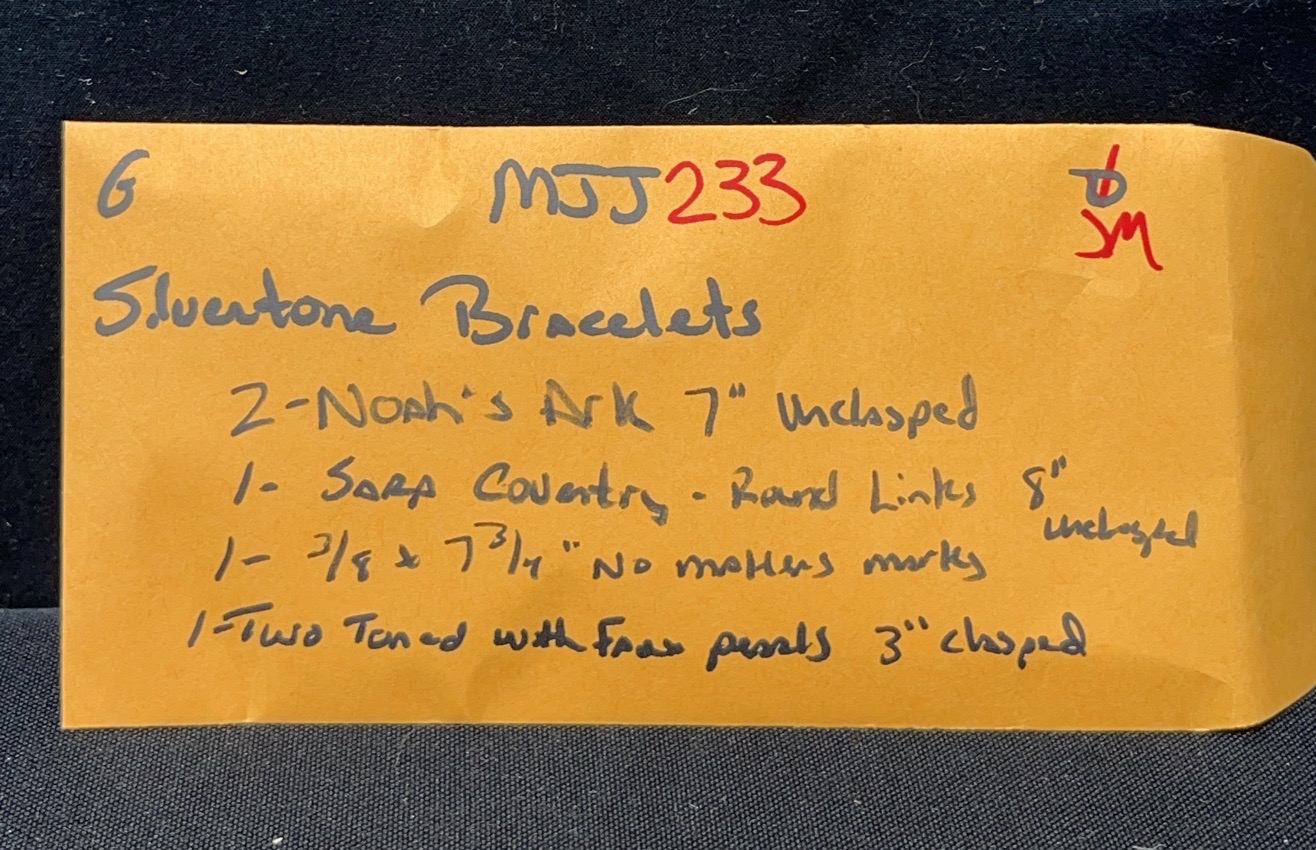 G MJJ233
JM
Silvertone Bracelets
2-Noah's Ark 7" Unclasped
1- SARA Coventry - Round Links 8" unclasped
1- 3/8 x 7 3/4" No makers marks
1-Two Toned with Faux pearls 3" clasped